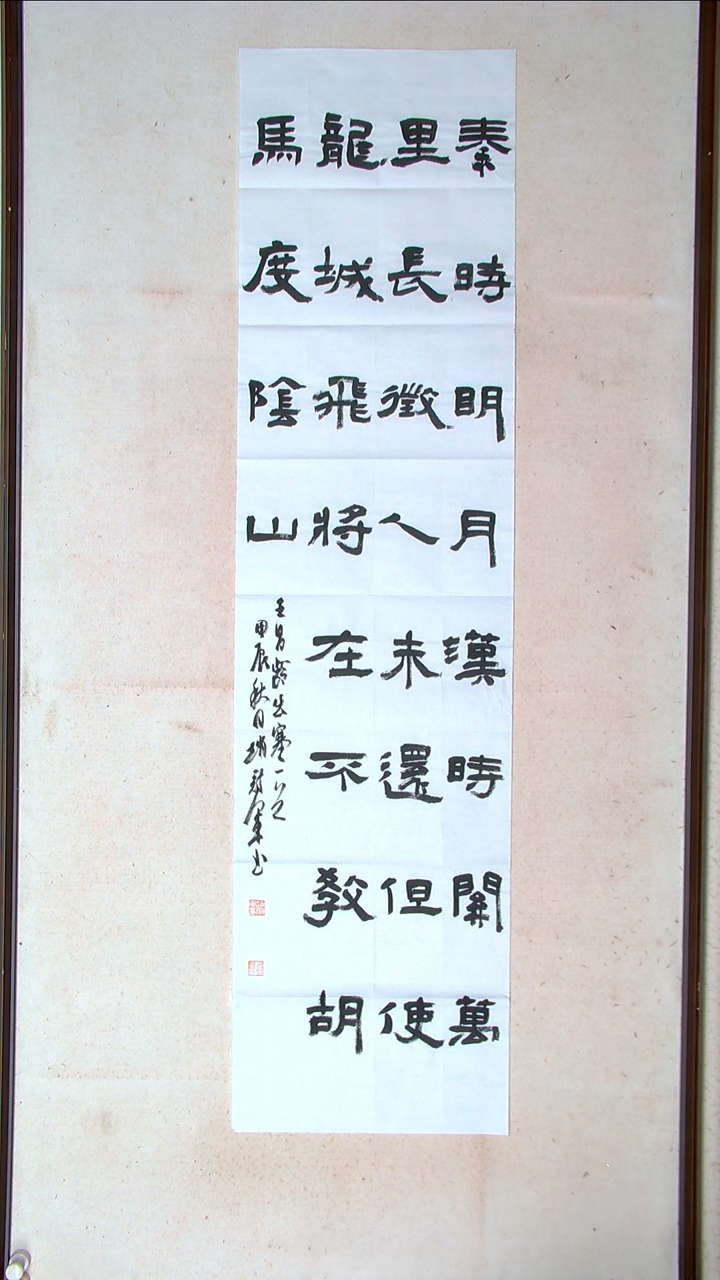 秦時明月漢時關萬
里長徵人未還但使
龍城飛將在不教胡
馬度陰山
王昌齡出塞一首
甲辰秋日趙軍書